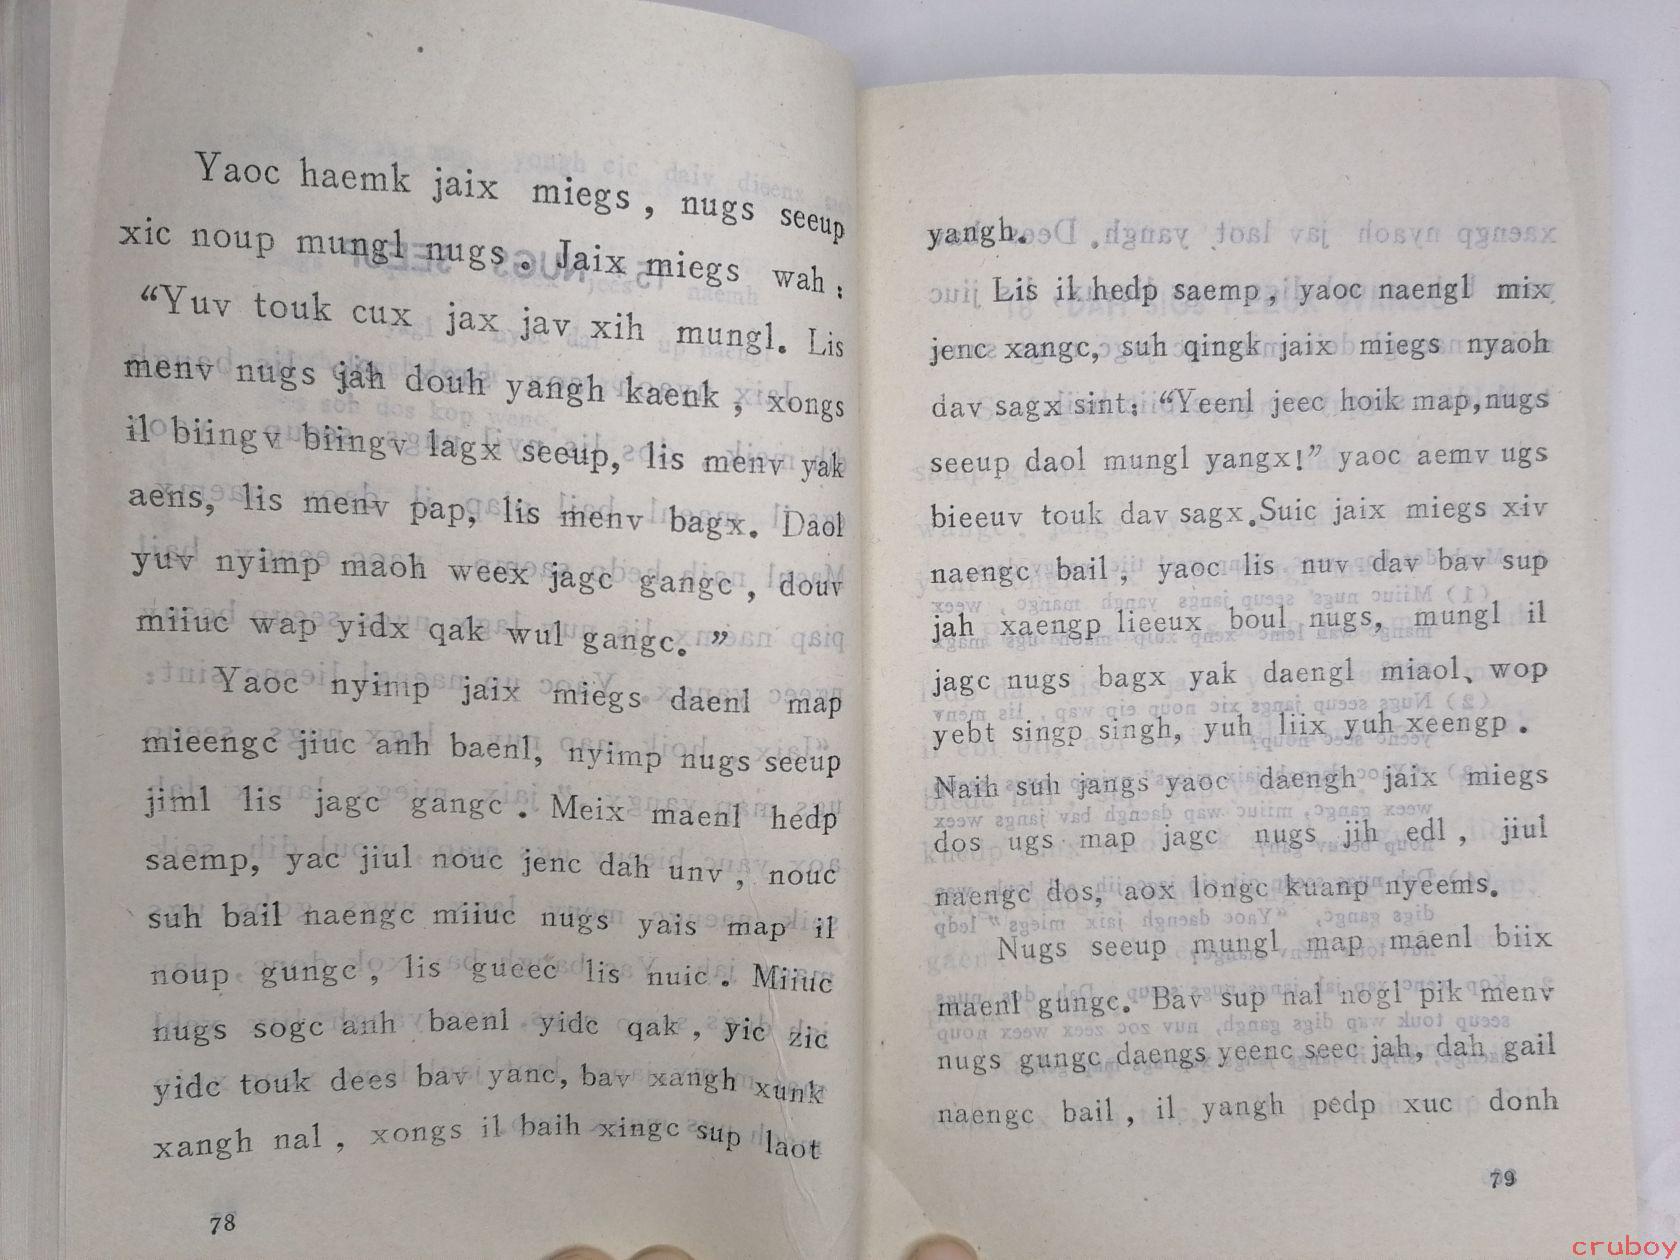 Yaoc haemk jaix miegs, nugs seeup
xic noup mungl nugs. Jaix miegs wah:
“Yuv touk cux jax jav xih mungl. Lis
menv nugs jah douh yangh kaenk, xongs
il biingv biingv lagx seeup, lis menv yak
aens, lis menv pap, lis menv bagx. Daol
yuv nyimp maoh weex jagc gangc, douv
miiuc wap yidx qak wul gangc.”
Yaoc nyimp jaix miegs daenl map
mieengc jiuc anh baenl, nyimp nugs seeup
jiml lis jagc gangc. Meix maenl hedp
saemp, yac jiul nouc jenc dah unv, nouc
suh bail naengc miiuc nugs yais map il
noup gungc, lis gueec lis nuic. Miiuc
nugs sogc anh baenl yidc qak, yic zic
yidc touk dees bav yanc, bav xangh xunk
xangh nal, xongs il baih xingc sup laot
78
yangh.
Lis il hedp saemp, yaoc naengl mix
jenc xangc, suh qingk jaix miegs nyaoh
dav sagx sint: “Yeenl jeec hoik map, nugs
seeup daol mungl yangx!” yaoc aemv ugs
bieeuv touk dav sagx. Suic jaix miegs xiv
naengc bail, yaoc lis nuv dav bav sup
jah xaengp lieeux boul nugs, mungl il
jagc nugs bagx yak daengl miaol, wop
yebt singp singh, yuh liix yuh xeengp.
Naih suh jangs yaoc daengh jaix miegs
dos ugs map jagc nugs jih edl, jiul
naengc dos, aox longc kuanp nyeems.
Nugs seeup mungl map maenl biix
maenl gungc. Bav sup nal nogl pik menv
nugs gungc daengs yeenc seec jah, dah gail
naengc bail, il yangh pedp xuc donh
79
cruboy